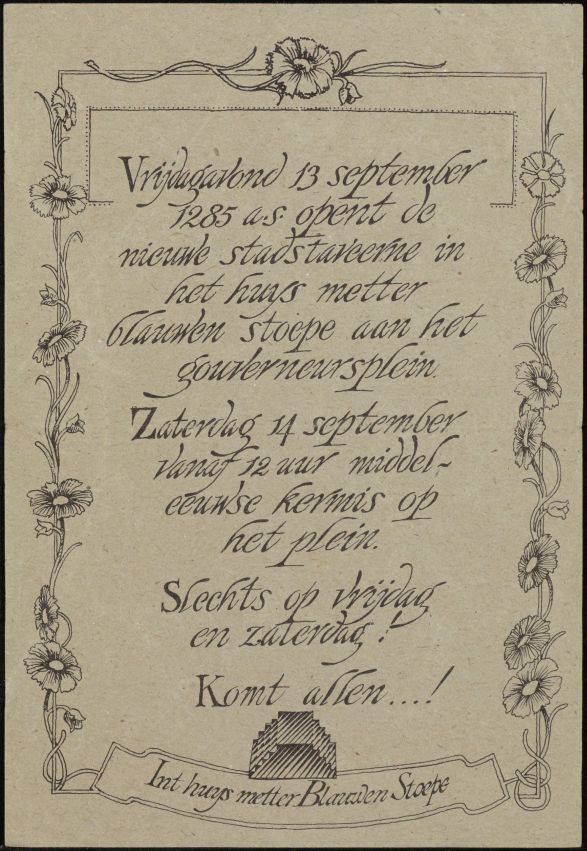 Vrijdagavond 13 september
1285 a.s. opent de
nieuwe stadstaveerne in
het huys metter
blauwen stoepe aan het
gouverneursplein.
Zaterdag 14 september
vanaf 12 uur middel-
eeuwse kermis op
het plein.
Slechts op vrijdag
en zaterdag!
Komt allen...!
Int huys metter Blauwen Stoepe